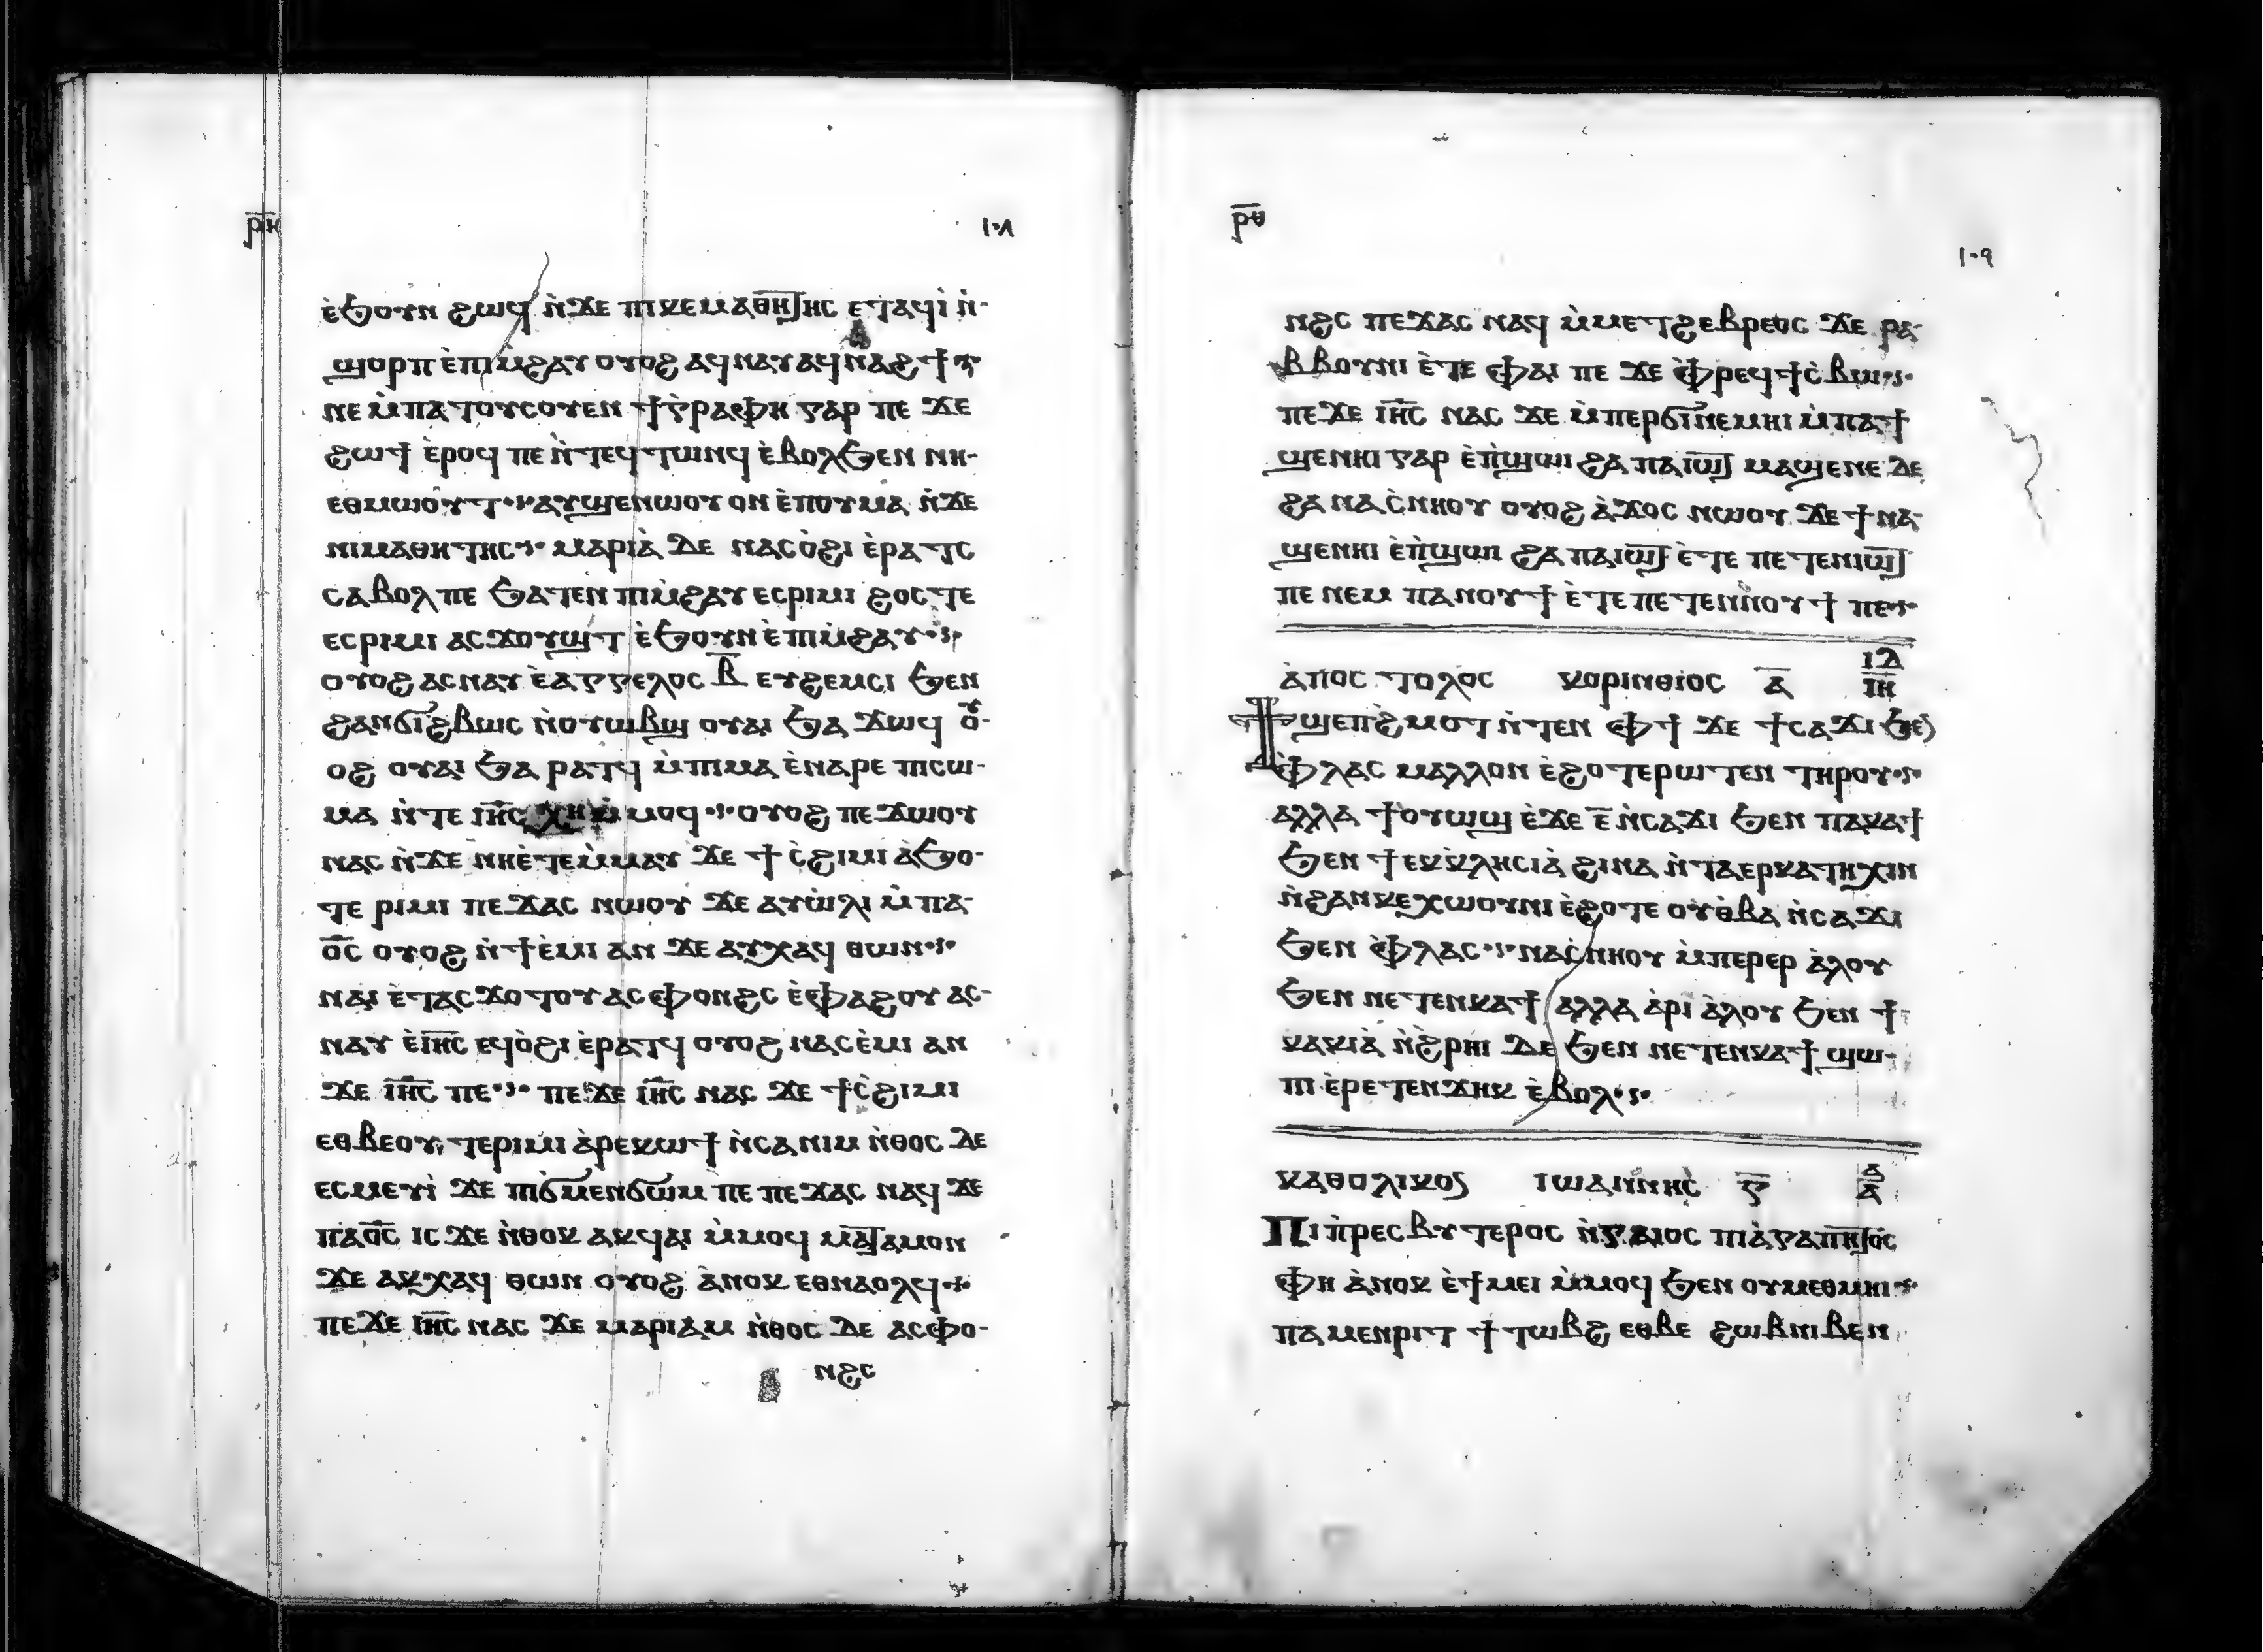 ⲣ̅ⲏ̅ ١٠٨
ⲉ̀ϧⲟⲩⲛ ϩⲱϥ ⲛ̀ϫⲉ ⲡⲓⲕⲉⲙⲁⲑⲏⲧⲏⲥ ⲉⲧⲁϥⲓ̀ ⲛ̀-
ϣⲟⲣⲡ ⲉ̀ⲡⲓⲙ̀ϩⲁⲩ ⲟⲩⲟϩ ⲁϥⲛⲁⲩ ⲁϥⲛⲁϩϯ
ⲛⲉ ⲙ̀ⲡⲁⲧⲟⲩⲥⲟⲩⲉⲛ ϯⲅ̀ⲣⲁⲫⲏ ⲅⲁⲣ ⲡⲉ ϫⲉ
ϩⲱϯ ⲉ̀ⲣⲟϥ ⲡⲉ ⲛ̀ⲧⲉϥⲧⲱⲛϥ ⲉ̀ⲃⲟⲗϧⲉⲛ ⲛⲏ-
ⲉⲑⲙⲱⲟⲩⲧ ⲁⲩϣⲉⲛⲱⲟⲩ ⲟⲛ ⲉ̀ⲡⲟⲩⲙⲁ ⲛ̀ϫⲉ
ⲛⲓⲙⲁⲑⲏⲧⲏⲥ ⲙⲁⲣⲓⲁ̀ ⲇⲉ ⲛⲁⲥⲟ̀ϩⲓ ⲉ̀ⲣⲁⲧⲥ
ⲥⲁⲃⲟⲗ ⲡⲉ ϧⲁⲧⲉⲛ ⲡⲓⲙ̀ϩⲁⲩ ⲉⲥⲣⲓⲙⲓ ϩⲟⲥⲧⲉ
ⲉⲥⲣⲓⲙⲓ ⲁⲥϫⲟⲩϣⲧ ⲉ̀ϧⲟⲩⲛ ⲉ̀ⲡⲓⲙ̀ϩⲁⲩ
ⲟⲩⲟϩ ⲁⲥⲛⲁⲩ ⲉ̀ⲁⲅⲅⲉⲗⲟⲥ ⲃ̅ ⲉⲩϩⲉⲙⲥⲓ ϧⲉⲛ
ϩⲁⲛϭⲓϩⲃⲱⲥ ⲛ̀ⲟⲩⲱⲃϣ ⲟⲩⲁⲓ ϧⲁ ϫⲱϥ ⲟⲩ-
ⲟϩ ⲟⲩⲁⲓ ϧⲁ ⲣⲁⲧϥ ⲙ̀ⲡⲓⲙⲁ ⲉ̀ⲛⲁⲣⲉ ⲡⲓⲥⲱ-
ⲙⲁ ⲛ̀ⲧⲉ ⲓⲏ̅ⲥ̅ ⲭⲏ ⲙ̀ⲙⲟϥ ⲟⲩⲟϩ ⲡⲉϫⲱⲟⲩ
ⲛⲁⲥ ⲛ̀ϫⲉ ⲛⲏⲉ̀ⲧⲉⲙ̀ⲙⲁⲩ ϫⲉ ϯⲥ̀ϩⲓⲙⲓ ⲁ̀ϧⲟ-
ⲧⲉ ⲣⲓⲙⲓ ⲡⲉϫⲁⲥ ⲛⲱⲟⲩ ϫⲉ ⲁⲩⲱ̀ⲗⲓ ⲙ̀ⲡⲁ-
ⲟ̅ⲥ̅ ⲟⲩⲟϩ ⲛ̀ϯⲉ̀ⲙⲓ ⲁⲛ ϫⲉ ⲁⲩⲭⲁϥ ⲑⲱⲛ
ⲛⲁⲓ ⲉ̀ⲧⲁⲥϫⲟⲧⲟⲩ ⲁⲥⲫⲟⲛϩⲥ ⲉ̀ⲫⲁϩⲟⲩ ⲁⲥ-
ⲛⲁⲩ ⲉ̀ⲓⲏ̅ⲥ̅ ⲉϥⲟ̀ϩⲓ ⲉ̀ⲣⲁⲧϥ ⲟⲩⲟϩ ⲛⲁⲥⲉ̀ⲙⲓ ⲁⲛ
ϫⲉ ⲓⲏ̅ⲥ̅ ⲡⲉ ⲡⲉϫⲉ ⲓⲏ̅ⲥ̅ ⲛⲁⲥ ϫⲉ ϯⲥ̀ϩⲓⲙⲓ
ⲉⲑⲃⲉⲟⲩ ⲧⲉⲣⲓⲙⲓ ⲁ̀ⲣⲉⲕⲱϯ ⲛ̀ⲥⲁⲛⲓⲙ ⲛ̀ⲑⲟⲥ ⲇⲉ
ⲉⲥⲙⲉⲩⲓ̀ ϫⲉ ⲡⲓϭⲙⲉⲛϭⲱⲙ ⲡⲉ ⲡⲉϫⲁⲥ ⲛⲁϥ ϫⲉ
ⲡⲁⲟ̅ⲥ̅ ⲓⲥϫⲉ ⲛ̀ⲑⲟⲕ ⲁⲕϥⲁⲓ ⲙ̀ⲙⲟϥ ⲙⲁⲧⲁⲙⲟⲛ
ϫⲉ ⲁⲕⲭⲁϥ ⲑⲱⲛ ⲟⲩⲟϩ ⲁ̀ⲛⲟⲕ ⲉⲑⲛⲁⲟⲗϥ
ⲡⲉϫⲉ ⲓⲏ̅ⲥ̅ ⲛⲁⲥ ϫⲉ ⲙⲁⲣⲓⲁⲙ ⲛ̀ⲑⲟⲥ ⲇⲉ ⲁⲥⲫⲟ-
ⲛϩⲥ
ⲣ̅ⲑ̅
١٠٩
ⲛϩⲥ ⲡⲉϫⲁⲥ ⲛⲁϥ ⲙ̀ⲙⲉⲧϩⲉⲃⲣⲉⲟⲥ ϫⲉ ⲣⲁ-
ⲃⲃⲟⲩⲛⲓ ⲉ̀ⲧⲉ ⲫⲁⲓ ⲡⲉ ϫⲉ ⲫ̀ⲣⲉϥϯⲥ̀ⲃⲱ
ⲡⲉϫⲉ ⲓⲏ̅ⲥ̅ ⲛⲁⲥ ϫⲉ ⲙ̀ⲡⲉⲣϭⲓⲛⲉⲙⲏⲓ ⲙ̀ⲡⲁϯ
ϣⲉⲛⲏⲓ ⲅⲁⲣ ⲉ̀ⲡ̀ϣⲱⲓ ϩⲁ ⲡⲁⲓⲱⲧ ⲙⲁϣⲉⲛⲉ ⲇⲉ
ϩⲁ ⲛⲁⲥ̀ⲛⲏⲟⲩ ⲟⲩⲟϩ ⲁ̀ϫⲟⲥ ⲛⲱⲟⲩ ϫⲉ ϯⲛⲁ-
ϣⲉⲛⲏⲓ ⲉ̀ⲡ̀ϣⲱⲓ ϩⲁ ⲡⲁⲓⲱⲧ ⲉ̀ⲧⲉ ⲡⲉⲧⲉⲛⲓⲱⲧ
ⲡⲉ ⲛⲉⲙ ⲡⲁⲛⲟⲩϯ ⲉ̀ⲧⲉ ⲡⲉⲧⲉⲛⲛⲟⲩϯ ⲡⲉ
ⲁ̀ⲡⲟⲥⲧⲟⲗⲟⲥ ⲕⲟⲣⲓⲛⲑⲓⲟⲥ ⲁ̅ ⲓ̅ⲇ̅ ⲓ̅ⲏ̅
ϯϣⲉⲡϩ̀ⲙⲟⲧ ⲛ̀ⲧⲉⲛ ⲫϯ ϫⲉ ϯⲥⲁϫⲓ ϧⲉⲛ
ⲫ̀ⲗⲁⲥ ⲙⲁⲗⲗⲟⲛ ⲉ̀ϩⲟⲧⲉⲣⲱⲧⲉⲛ ⲧⲏⲣⲟⲩ
ⲁⲗⲗⲁ ϯⲟⲩⲱϣ ⲉ̀ϫⲉ ⲉ̅ ⲛ̀ⲥⲁϫⲓ ϧⲉⲛ ⲡⲁⲕⲁϯ
ϧⲉⲛ ϯⲉⲕⲕⲗⲏⲥⲓⲁ̀ ϩⲓⲛⲁ ⲛ̀ⲧⲁⲉⲣⲕⲁⲧⲏⲭⲓⲛ
ⲛ̀ϩⲁⲛⲕⲉⲭⲱⲟⲩⲛⲓ ⲉ̀ϩⲟⲧⲉ ⲟⲩⲑ̀ⲃⲁ ⲛ̀ⲥⲁϫⲓ
ϧⲉⲛ ⲫ̀ⲗⲁⲥ ⲛⲁⲥ̀ⲛⲏⲟⲩ ⲙ̀ⲡⲉⲣⲉⲣ ⲁ̀ⲗⲟⲩ
ϧⲉⲛ ⲛⲉⲧⲉⲛⲕⲁϯ ⲁⲗⲗⲁ ⲁ̀ⲣⲓ ⲁ̀ⲗⲟⲩ ϧⲉⲛ ϯ-
ⲕⲁⲕⲓⲁ̀ ⲛ̀ϩ̀ⲣⲏⲓ ⲇⲉ ϧⲉⲛ ⲛⲉⲧⲉⲛⲕⲁϯ ϣⲱ-
ⲡⲓ ⲉ̀ⲣⲉⲧⲉⲛϫⲏⲕ ⲉ̀ⲃⲟⲗ
ⲕⲁⲑⲟⲗⲓⲕⲟⲥ ⲓⲱⲁⲛⲛⲏⲥ ⲅ̅ ⲁ̅ ⲁ̅
ⲡⲓⲡ̀ⲣⲉⲥⲃⲩⲧⲉⲣⲟⲥ ⲛ̀ⲅⲁⲓⲟⲥ ⲡⲓⲁ̀ⲅⲁⲡⲏⲧⲟⲥ
ⲫⲏ ⲁ̀ⲛⲟⲕ ⲉ̀ϯⲙⲉⲓ ⲙ̀ⲙⲟϥ ϧⲉⲛ ⲟⲩⲙⲉⲑⲙⲏⲓ
ⲡⲁⲙⲉⲛⲣⲓⲧ ϯⲧⲱⲃϩ ⲉⲑⲃⲉ ϩⲱⲃⲛⲓⲃⲉⲛ